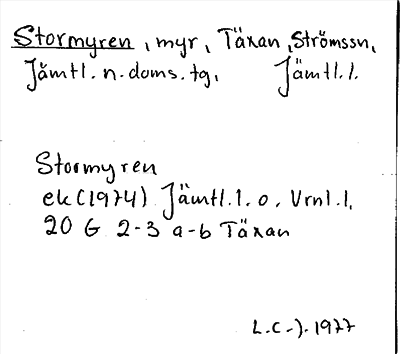 Stormyren, myr, Täxan, Strömssn,
Jämtl. n. doms. tg, Jämtl. l.
Stormyren
ek (1974) Jämtl. l. o. Vrnl. l,
20 G 2-3 a-b Täxan
L.C-J. 1977